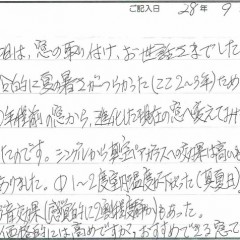 ご記入日 28年 9
は、窓の取り付け、お世話さまでした
的に夏の暑さがつらかった(ここ2~3年)ため
年程前の窓から、進化した現在の窓へ変えてみ
たかです。シングルから真空ペアガラスへの効果は高い
ありました。①1~2度室内温度が下がった(真夏日)
音効果(感覚的に2割程静か)もあった。
価格的には高めですが、おすすめできる窓で